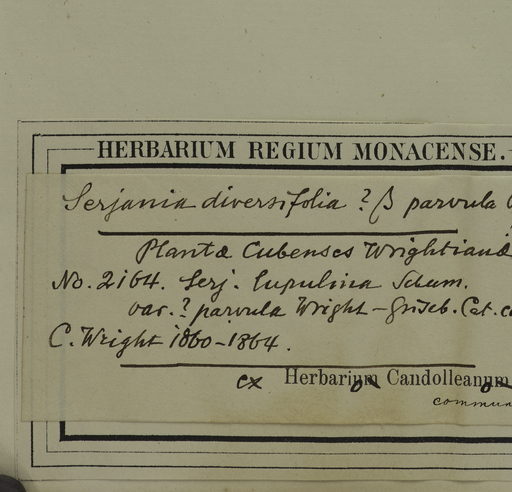 HERBARIUM REGIUM MONACENSE.
Serjania diversifolia ? β parvula
Plantæ Cubenses Wrightianæ
No. 2164. Serj. lupulina Schum.
var. ? parvula Wright - Griseb. Cat.
C. Wright 1860-1864.
ex Herbario Candolleano
commun